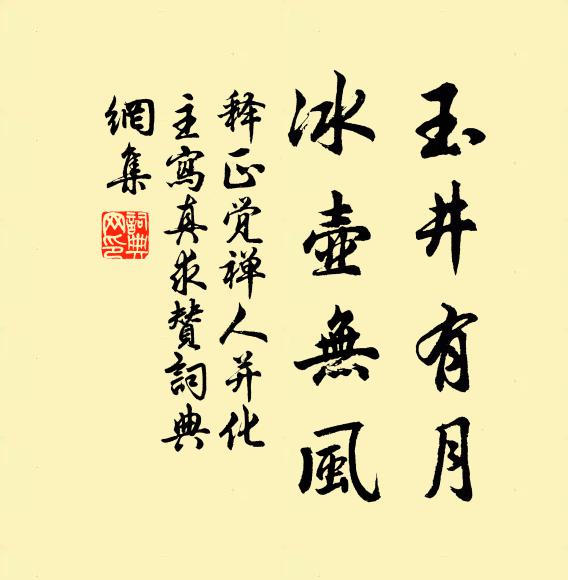 玉井有月
冰壺無風
释正觉禅人并化
主寫真求贊詞典
網集
詞典網印